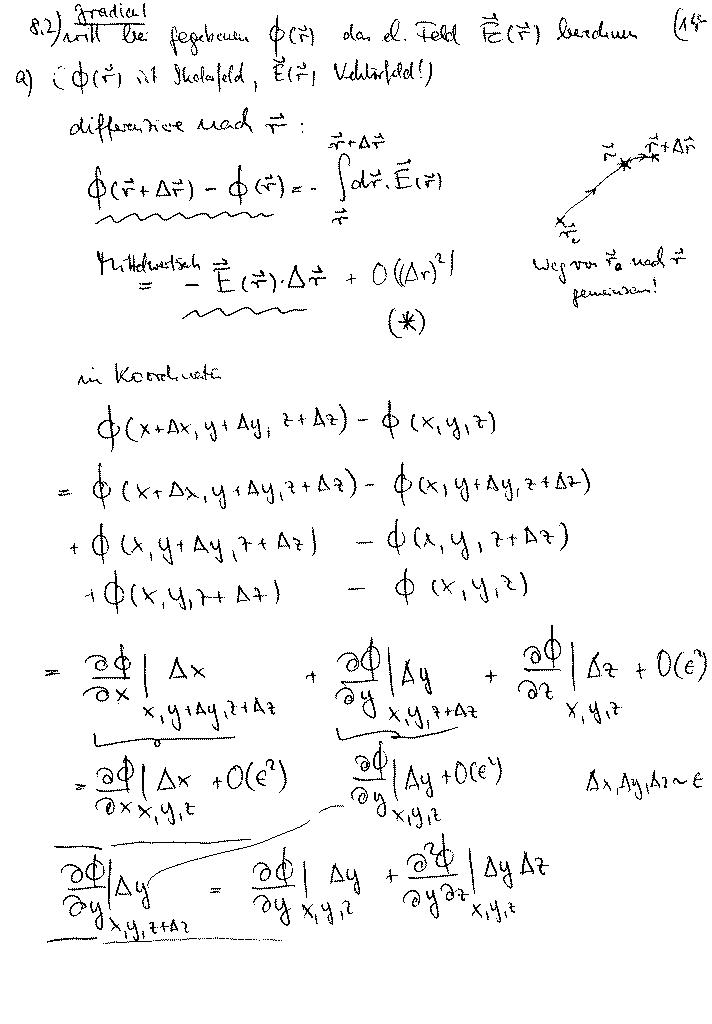 Gradient
8.2) will bei gegebenem ϕ(r⃗) das el. Feld E⃗(r⃗) berechnen
a) (ϕ(r⃗) ist Skalarfeld, E⃗(r⃗) Vektorfeld!)
differenziere nach r⃗ :
ϕ(r⃗+Δr⃗) - ϕ(r⃗) = - ∫_{r⃗}^{r⃗+Δr⃗} dr⃗·E⃗(r⃗)
r⃗ r⃗+Δr⃗
r⃗₀
Weg von r⃗₀ nach r⃗
gemeinsam!
Mittelwertsatz
= - E⃗(r⃗)·Δr⃗ + O((Δr)²)
(*)
in Koordinaten
ϕ(x+Δx, y+Δy, z+Δz) - ϕ(x,y,z)
= ϕ(x+Δx, y+Δy, z+Δz) - ϕ(x, y+Δy, z+Δz)
+ ϕ(x, y+Δy, z+Δz) - ϕ(x, y, z+Δz)
+ ϕ(x, y, z+Δz) - ϕ(x, y, z)
= ∂ϕ/∂x |_{x,y+Δy,z+Δz} Δx + ∂ϕ/∂y |_{x,y,z+Δz} Δy + ∂ϕ/∂z |_{x,y,z} Δz + O(ε²)
= ∂ϕ/∂x |_{x,y,z} Δx + O(ε²) ∂ϕ/∂y |_{x,y,z} Δy + O(ε²) Δx, Δy, Δz ~ ε
∂ϕ/∂y |_{x,y,z+Δz} Δy = ∂ϕ/∂y |_{x,y,z} Δy + ∂²ϕ/∂y∂z |_{x,y,z} Δy Δz